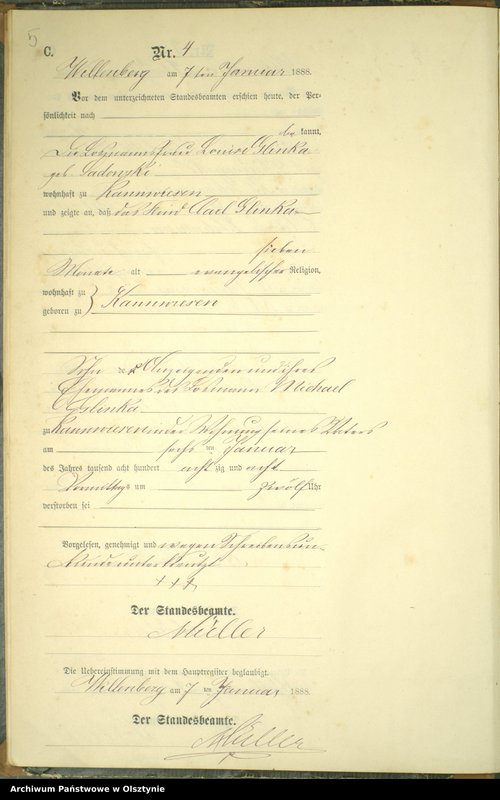 5
C.
Nr. 4
Willenberg am 7 ten Januar 1888.
Vor dem unterzeichneten Standesbeamten erschien heute, der Per-
sönlichkeit nach
kannt,
die Losmannsfrau Louise Glinka
geb. Sadowski
wohnhaft zu Kannwiesen
und zeigte an, daß das Kind Carl Glinka
sieben
Monate alt evangelischer Religion,
wohnhaft zu
geboren zu } Kannwiesen
Sohn der Anzeigenden und ihres
Ehemannes des Losmann Michael
Glinka
zu Kannwiesen in der Wohnung seines Vaters
am sechs ten Januar
des Jahres tausend acht hundert acht zig und acht
Vormittags um zwölf Uhr
verstorben sei
Vorgelesen, genehmigt und wegen Schreibensun-
kunde unterkreuzt
+++
Der Standesbeamte.
Müller
Die Uebereinstimmung mit dem Hauptregister beglaubigt.
Willenberg am 7 ten Januar 1888.
Der Standesbeamte.
Müller
Archiwum Państwowe w Olsztynie